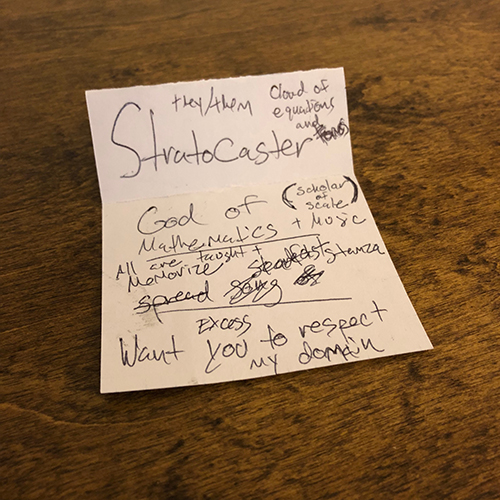 they/them
Cloud of
equations
and
Stratocaster
God of
(scholar
of
scale)
Mathematics + Music
All are taught +
Memorize steadfast stanza
spread song
Excess
Want you to respect
my domain